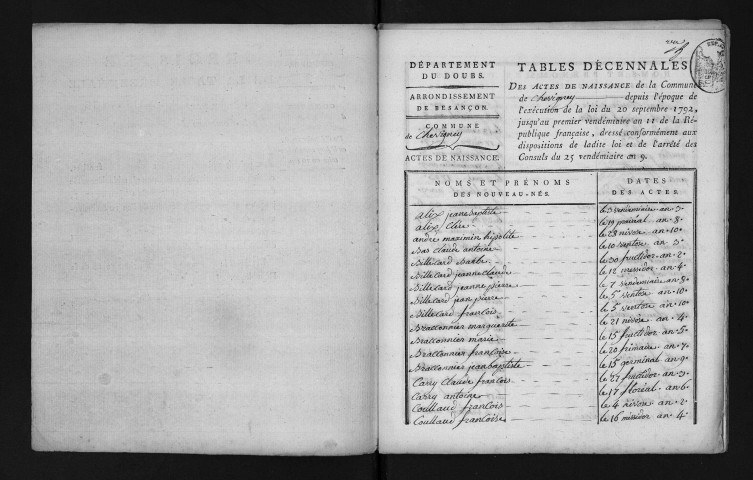 DÉPARTEMENT
DU DOUBS.
ARRONDISSEMENT
DE BESANÇON.
COMMUNE
de Chevigney
ACTES DE NAISSANCE.
TABLES DÉCENNALES
DES ACTES DE NAISSANCE de la Commune
de Chevigney depuis l'époque de
l'exécution de la loi du 20 septembre 1792,
jusqu'au premier vendémiaire an 11 de la Ré-
publique française, dressé conformément aux
dispositions de ladite loi et de l'arrêté des
Consuls du 25 vendémiaire an 9.
NOMS ET PRÉNOMS
DES NOUVEAU-NÉS.
DATES
DES ACTES.
alix jeane baptiste le 3 vendemiaire an 5e
alix Clire le 19 prairial an 8e
andre maximin hipolite le 28 nivose an 10e
Bas Claude antoine le 10 ventose an 3e
Billecard barbe le 30 fructidor an 2e
Billecard jeanne claude le 12 messidor an 4e
Billecard jeanne pierre le 7 vendemiaire an 8e
Billecard jean pierre le 5 ventose an 10e
Billecard francois le 5 ventose an 10e
Braconnier marguerite le 21 nivose an 4e
Braconnier marie le 15 fructidor an 5e
Braconnier francoise le 20 frimaire an 7e
Braconnier jean baptiste le 15 germinal an 9e
Carry Claude francois le 27 fructidor an 3e
Carry antoine le 17 floreal an 6e
Coullaud francois le 4 nivose an 2e
Coullaud francoise le 16 messidor an 4e